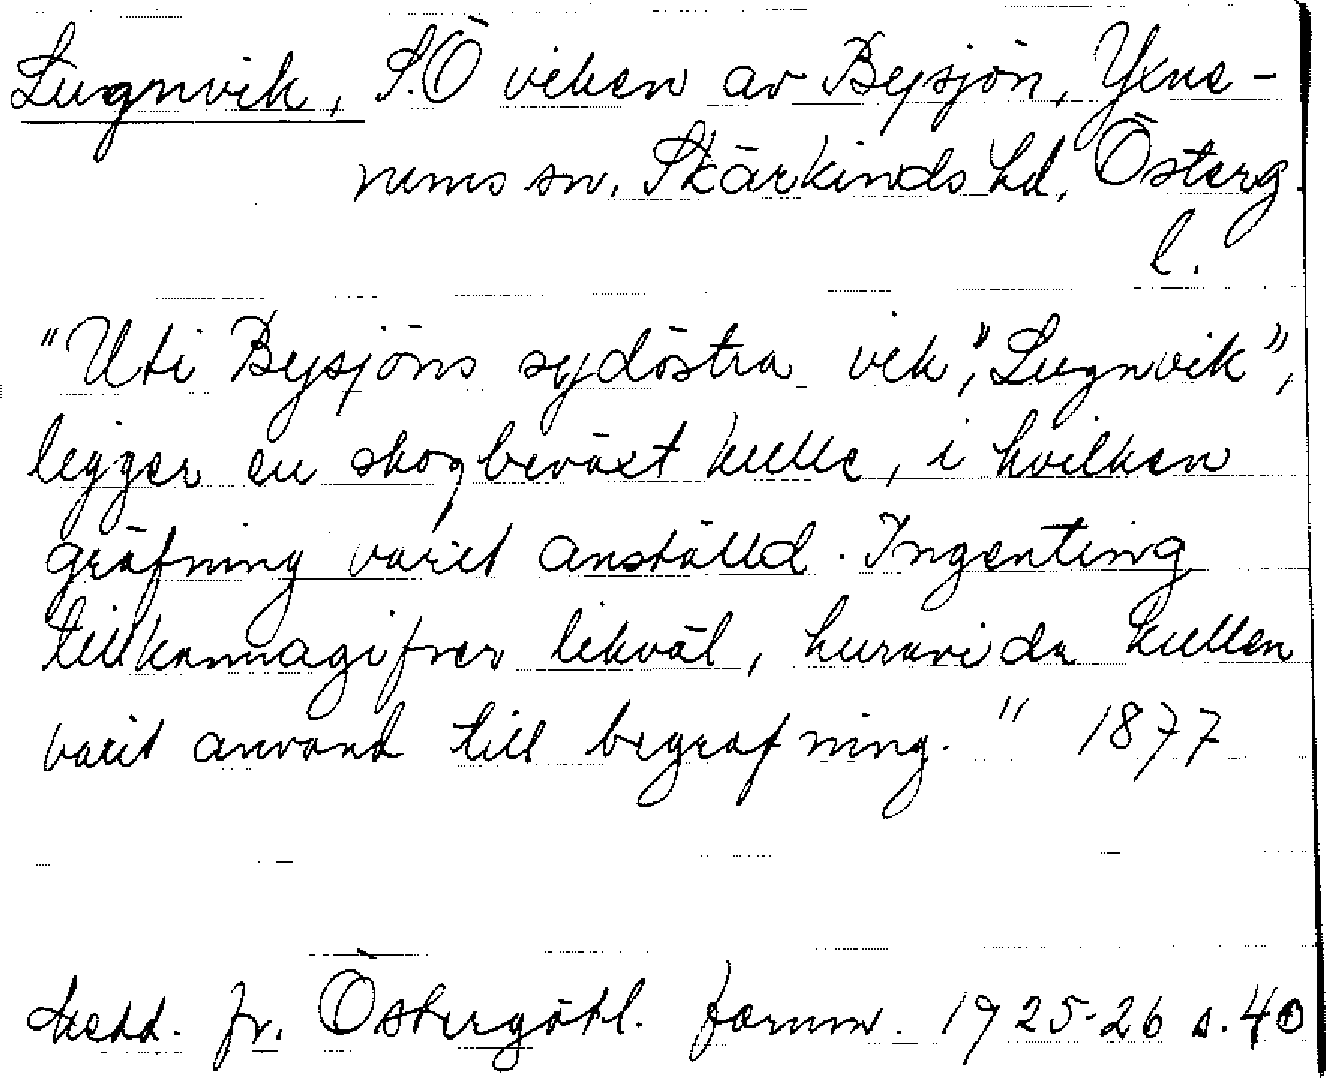 Lugnvik, S.Ö viken av Bysjön, Yxne-
rums sn. Skärkinds hd, Österg
l.
"Uti Bysjöns sydöstra vik, "Lugnvik",
ligger en skogbeväxt kulle, i hvilken
gräfning varit anställd. Ingenting
tillkännagifver likväl, huruvida kullen
varit använd till begrafning." 1877
Medd. fr. Östergötl. fornm. 1925-26 s. 40